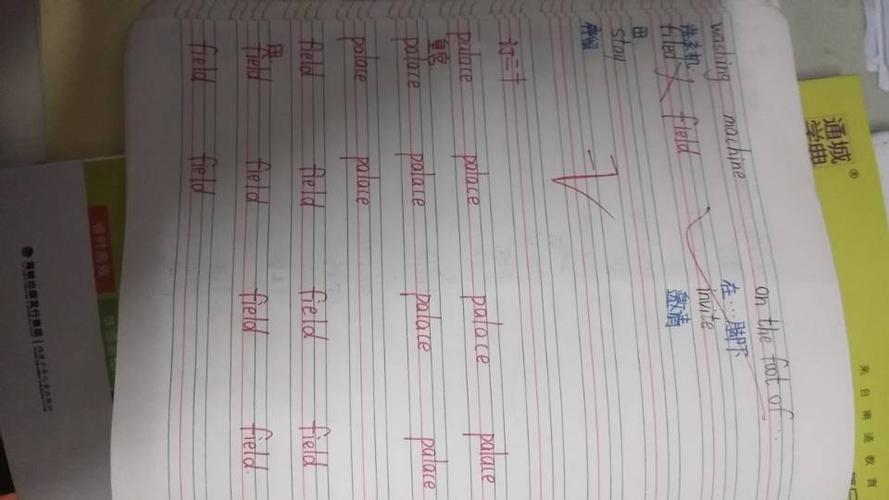 washing machine on the foot of ...
洗衣机 在…脚下
fiel field invite
田 邀请
stay
停留
-1
订正
palace palace palace palace
皇宫
palace palace palace palace
palace palace
field field field field
田
field field field field.
field field
通城学典®
来自南通教育
省时高效